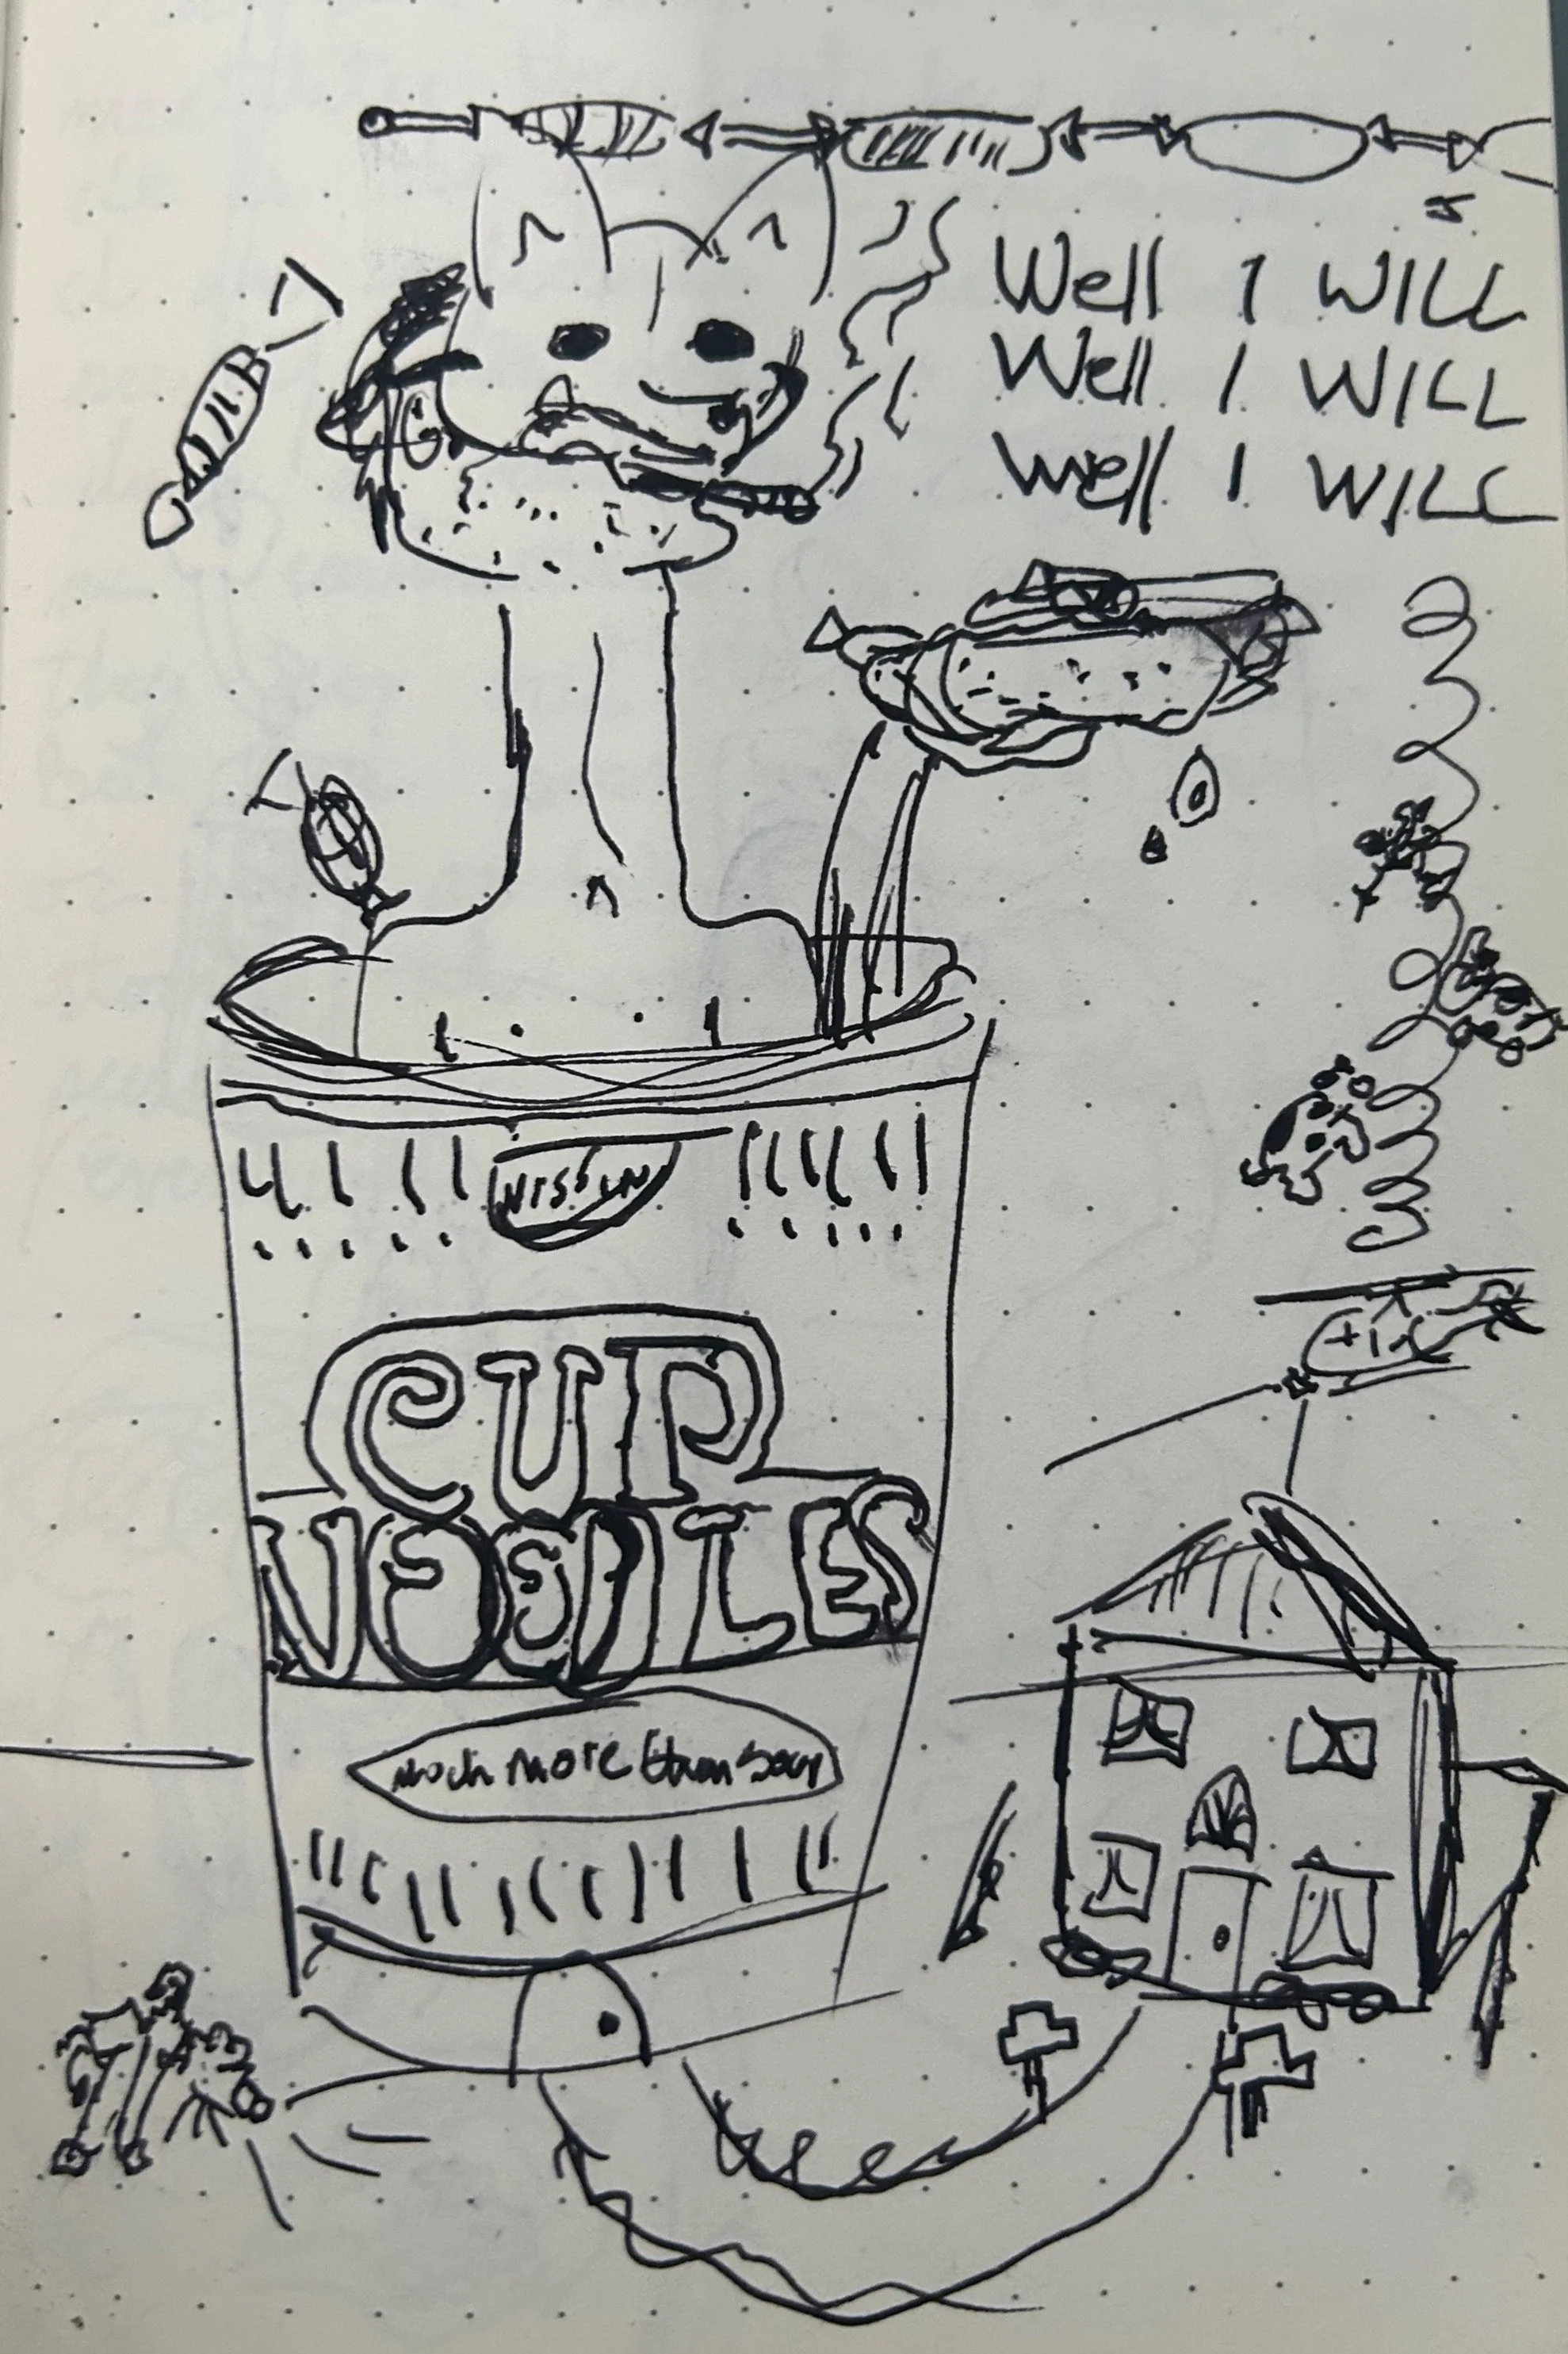 Well I WILL
Well I WILL
Well I WILL
NISSIN
CUP
NOODLES
much more than soup